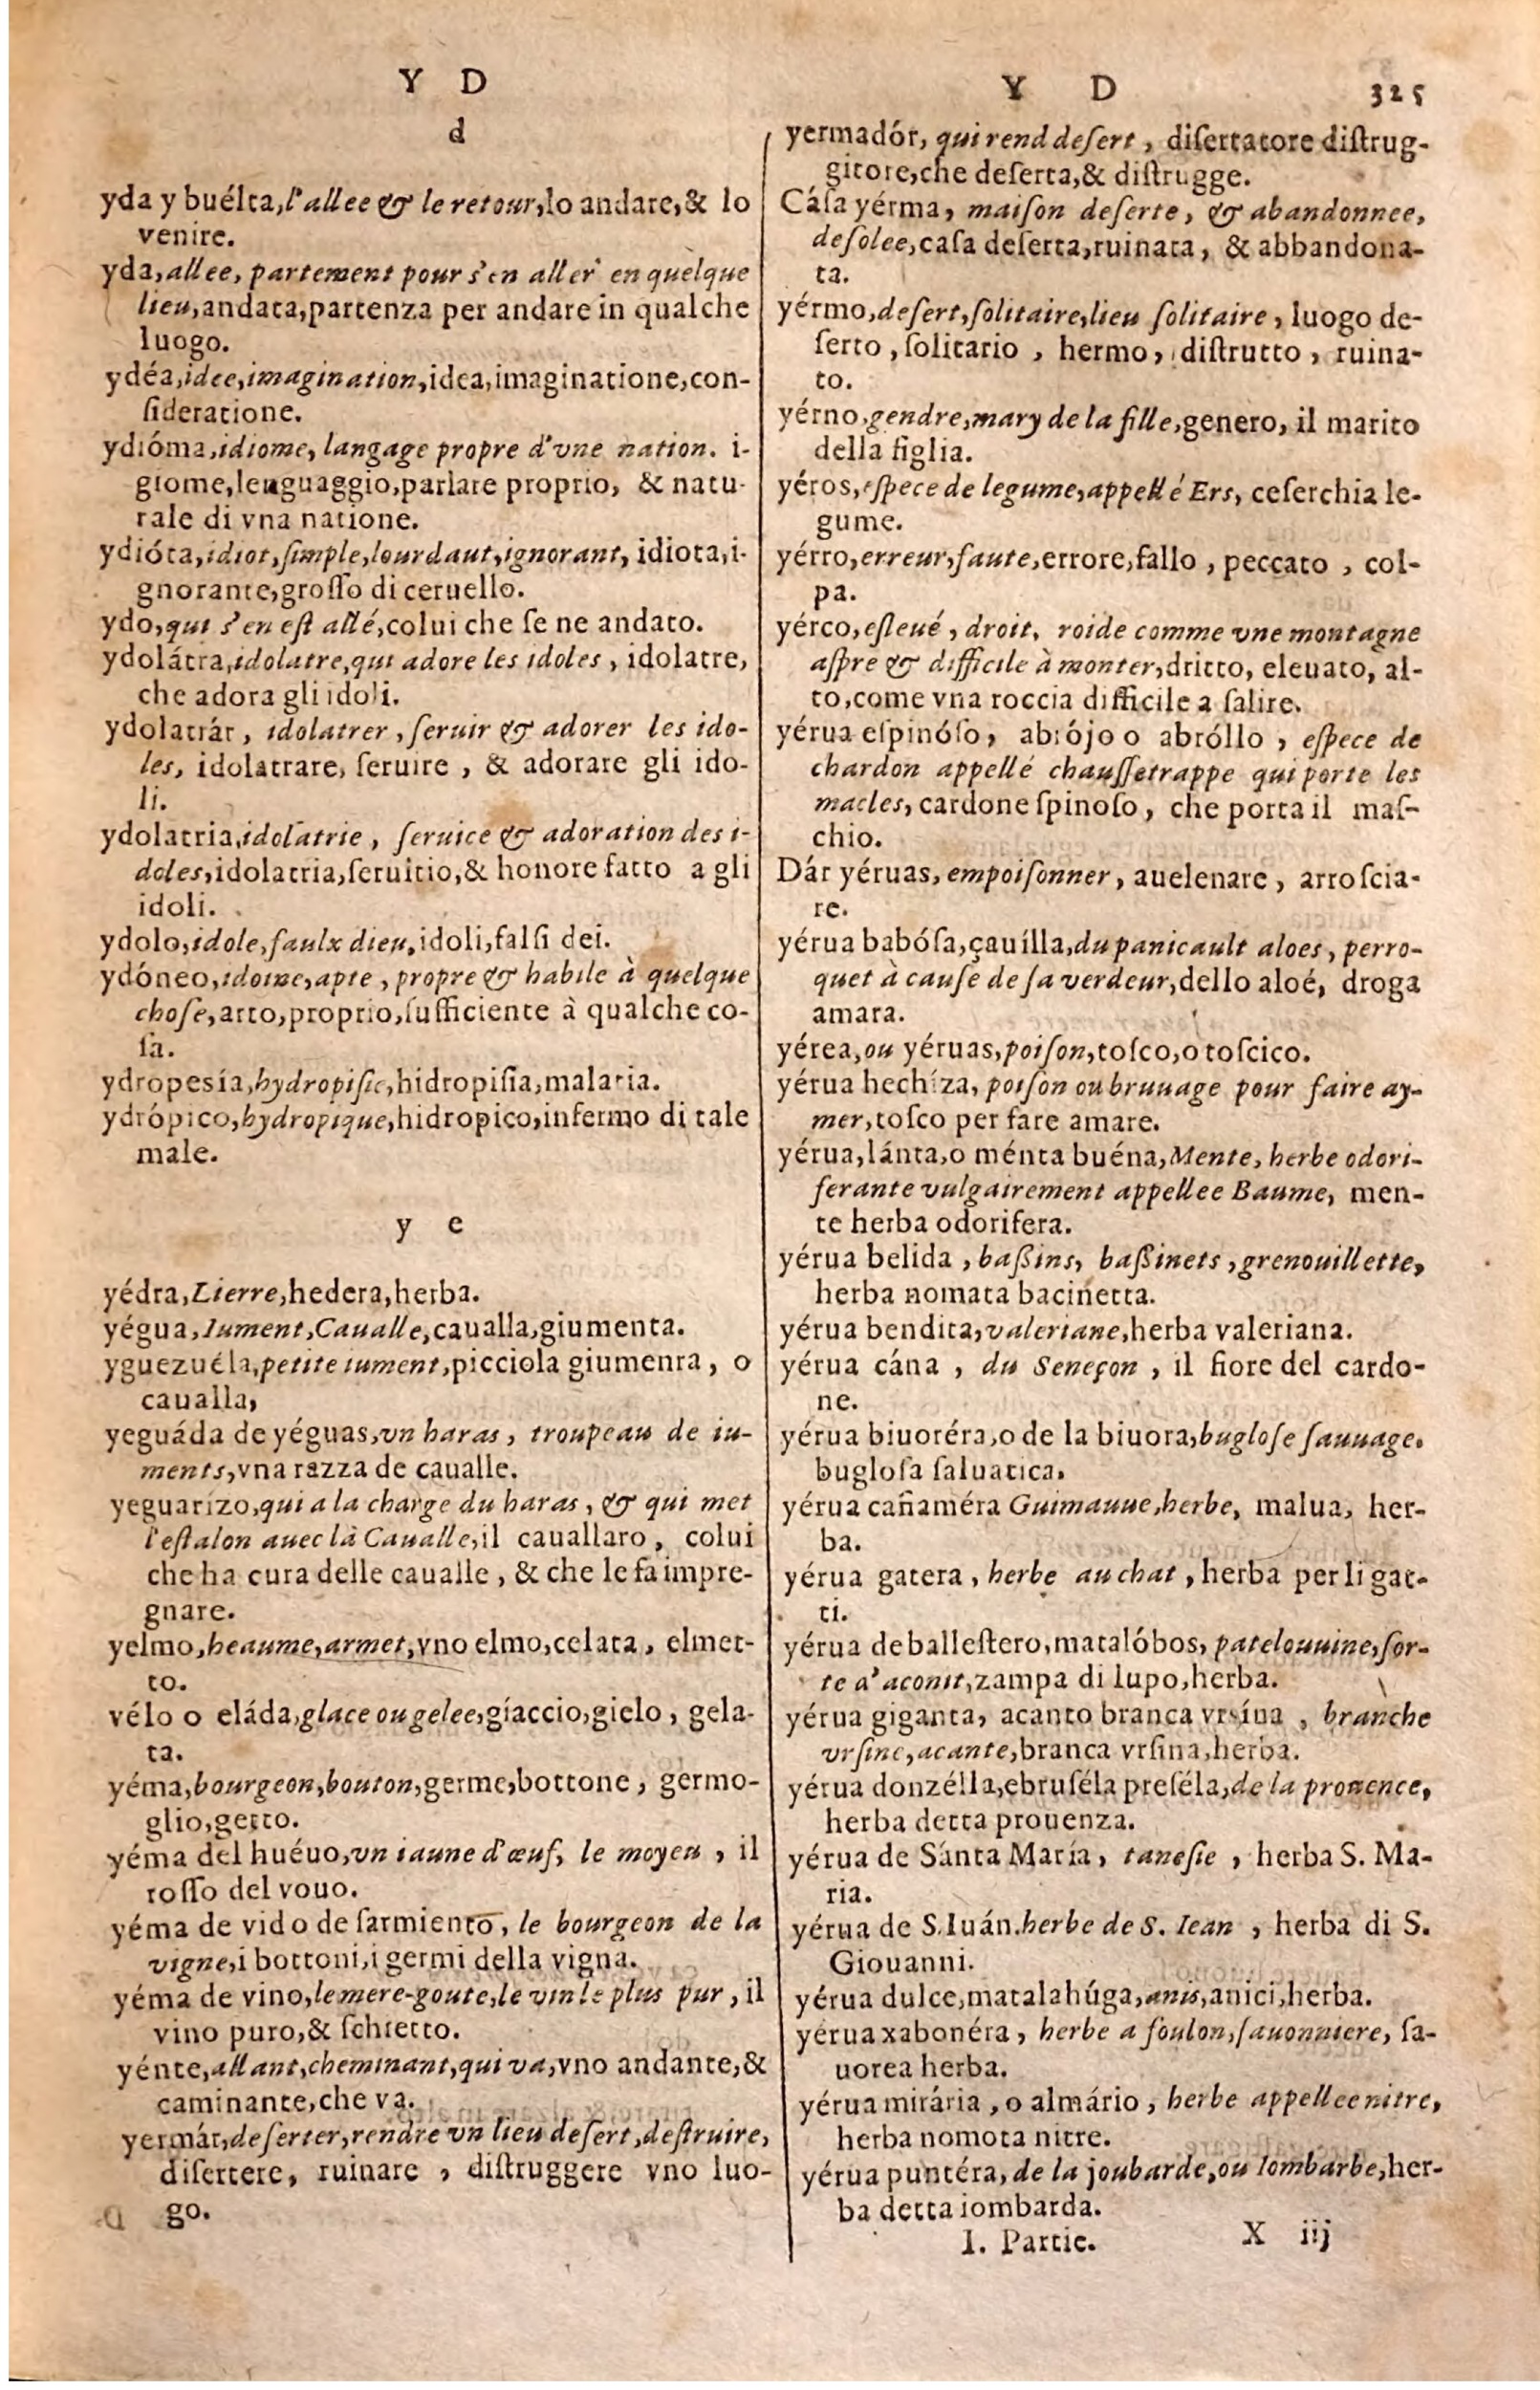 Y D
d
yda y buélta,l'allee & le retour,lo andare,& lo
venire.
yda,allee, partement pour s'en aller en quelque
lieu,andata,partenza per andare in qualche
luogo.
ydéa,idee,imagination,idea,imaginatione,con-
ſideratione.
ydióma,idiome, langage propre d'vne nation. i-
giome,lenguaggio,parlare proprio, & natu-
rale di vna natione.
ydióta,idiot,ſimple,lourdaut,ignorant, idiota,i-
gnorante,groſſo di ceruello.
ydo,qui s'en eſt allé,colui che ſe ne andato.
ydolátra,idolatre,qui adore les idoles, idolatre,
che adora gli idoli.
ydolatrár, idolatrer, ſeruir & adorer les ido-
les, idolatrare, ſeruire, & adorare gli ido-
li.
ydolatria,idolatrie, ſeruice & adoration des i-
doles,idolatria,ſeruitio,& honore fatto a gli
idoli.
ydolo,idole,faulx dieu,idoli,falſi dei.
ydóneo,idoine,apte, propre & habile à quelque
choſe,atto,proprio,ſufficiente à qualche co-
ſa.
ydropesía,hydropiſie,hidropiſia,malatia.
ydrópico,hydropique,hidropico,infermo di tale
male.
y e
yédra,Lierre,hedera,herba.
yégua,Iument,Caualle,caualla,giumenta.
yguezuéla,petite iument,picciola giumenra, o
caualla,
yeguáda de yéguas,vn haras, troupeau de iu-
ments,vna razza de caualle.
yeguarízo,qui a la charge du haras, & qui met
l'eſtalon auec là Caualle,il cauallaro, colui
che ha cura delle caualle, & che le fa impre-
gnare.
yelmo,heaume,armet,vno elmo,celata, elmet-
to.
vélo o eláda,glace ou gelee,giaccio,gielo, gela-
ta.
yéma,bourgeon,bouton,germe,bottone, germo-
glio,getto.
yéma del huéuo,vn iaune d'œuf, le moyeu, il
roſſo del vouo.
yéma de vido de ſarmiento, le bourgeon de la
vigne,i bottoni,i germi della vigna.
yéma de vino,le mere-goute,le vin le plus pur, il
vino puro,& ſchietto.
yénte,allant,cheminant,qui va,vno andante,&
caminante,che va.
yermár,deſerter,rendre vn lieu deſert,deſtruire,
diſertere, ruinare, diſtruggere vno luo-
go.
Y D 325
yermadór, qui rend deſert, diſertatore diſtrug-
gitore,che deſerta,& diſtrugge.
Cáſa yérma, maiſon deſerte, & abandonnee,
deſolee,caſa deſerta,ruinata, & abbandona-
ta.
yérmo,deſert,ſolitaire,lieu ſolitaire, luogo de-
ſerto, ſolitario, hermo, diſtrutto, ruina-
to.
yérno,gendre,mary de la fille,genero, il marito
della figlia.
yéros,eſpece de legume,appellé Ers, ceſerchia le-
gume.
yérro,erreur,faute,errore,fallo, peccato, col-
pa.
yérto,eſleué, droit, roide comme vne montagne
aſpre & difficile à monter,dritto, eleuato, al-
to,come vna roccia difficile a ſalire.
yérua eſpinóſo, abrójo o abróllo, eſpece de
chardon appellé chauſſetrappe qui porte les
macles, cardone ſpinoſo, che porta il maſ-
chio.
Dár yéruas, empoiſonner, auelenare, arroſcia-
re.
yérua babóſa,çauílla,du panicault aloes, perro-
quet à cauſe de ſa verdeur,dello aloé, droga
amara.
yérea,ou yéruas,poiſon,toſco,o toſcico.
yérua hechíza, poiſon ou bruuage pour faire ay-
mer,toſco per fare amare.
yérua,lánta,o ménta buéna,Mente, herbe odori-
ferante vulgairement appellee Baume, men-
te herba odorifera.
yérua belida, baßins, baßinets,grenouillette,
herba nomata bacinetta.
yérua bendita,valeriane,herba valeriana.
yérua cána, du Seneçon, il fiore del cardo-
ne.
yérua biuoréra,o de la biuora,bugloſe ſauuage.
bugloſa ſaluatica.
yérua cañaméra Guimauue,herbe, malua, her-
ba.
yérua gatera, herbe au chat, herba per li gat-
ti.
yérua de balleſtero,matalóbos, patelouuine,ſor-
te d'aconit,zampa di lupo,herba.
yérua giganta, acanto branca vrsína, branche
vrſine,acante,branca vrſina,herba.
yérua donzélla,ebruſéla preſéla,de la prouence,
herba detta prouenza.
yérua de Sánta María, taneſie, herba S. Ma-
ria.
yérua de S.Iuán.herbe de S. Iean, herba di S.
Giouanni.
yérua dulce,matalahúga,anis,anici,herba.
yérua xabonéra, herbe a foulon,ſauonniere, ſa-
uorea herba.
yérua mirária, o almário, herbe appellee nitre,
herba nomota nitre.
yérua puntéra, de la joubarde,ou Iombarbe,her-
ba detta iombarda.
I. Partie. X iij